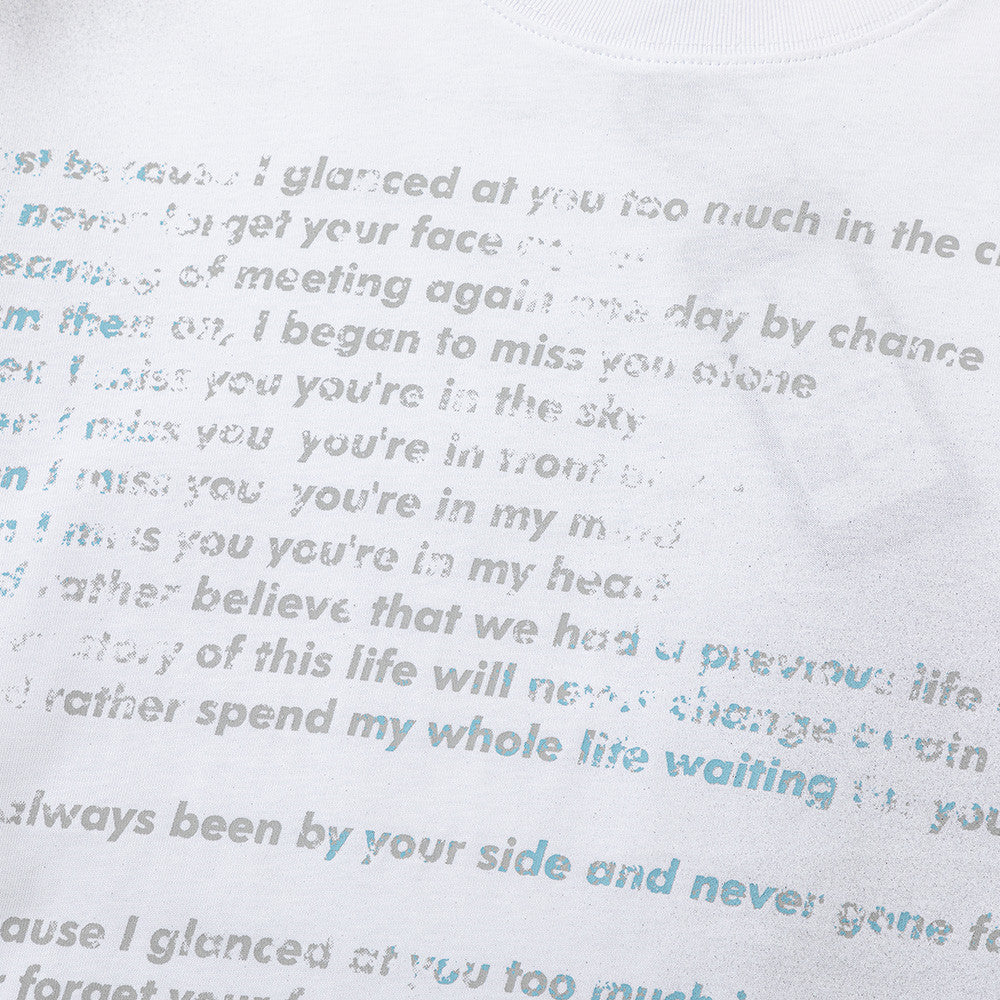 because I glanced at you too much in the
never forget your face
of meeting again one day by chance
then on, I began to miss you alone
I miss you you're in the sky
I miss you you're in front
I miss you you're in my mind
I miss you you're in my heart
rather believe that we had a previous life
story of this life will never change again
rather spend my whole life waiting
always been by your side and never gone
I glanced at you too much
forget your